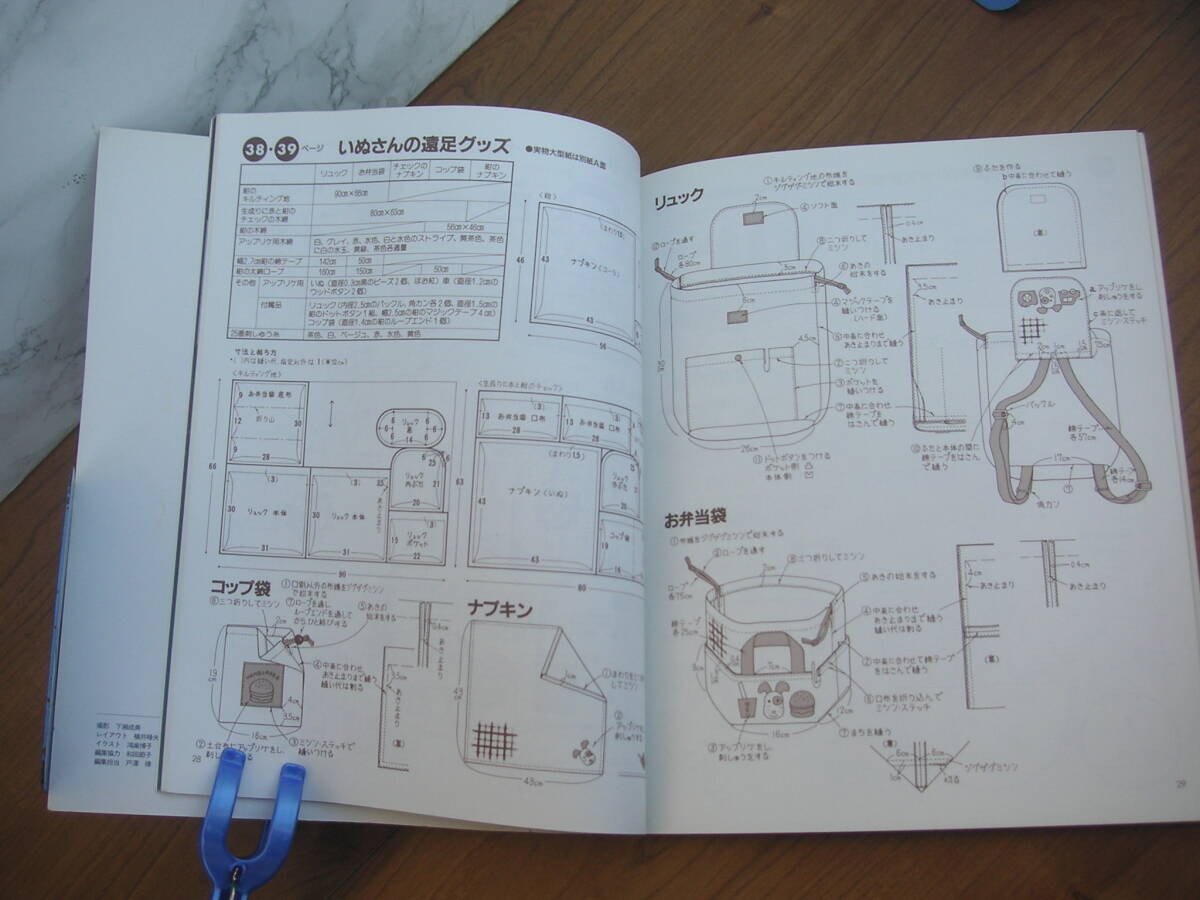 38・39ページ いぬさんの遠足グッズ ●実物大型紙は別紙A面
リュック お弁当袋 チェックのナプキン コップ袋 紺のナプキン
紺のキルティング地
生成りに赤と紺のチェックの木綿 80cm×63cm
紺の木綿 56cm×46cm
アップリケ用木綿 白、グレイ、赤、水色、白と水色のストライプ、黄茶色、茶色に白の水玉、黄緑、茶色各適量
幅2.7cm紺の綿テープ 142cm 50cm
紺の太綿ロープ 160cm 150cm 50cm
その他 アップリケ用 いぬ(直径0.3cm黒のビーズ2個、ほお紅) 車(直径1.2cmのウッドボタン2個)
付属品 リュック(内径2.5cmのバックル、角カン各2個、直径1.5cmの紺のドットボタン1組、幅2.5cmの紺のマジックテープ4cm)
コップ袋(直径1.4cmの紺のループエンド1個)
25番刺しゅう糸 茶色、白、ベージュ、赤、水色、黄色
寸法と裁ち方
<紺>
(まわり1.5)
ナプキン(コーラ)
46
43
43
56
<キルティング地>
9 お弁当袋 底布
12 折り山 30
9
28
リュック 底
6 6 6 6
14
66
(3)
30 リュック 本体
31
(3)
30 リュック 本体
31
あき止まり
リュック 内ぶた
25
21
20
(3)
リュック ポケット
22
90
<生成りに赤と紺のチェック>
(3)
13 お弁当袋 口布
28
(3)
13 お弁当袋 口布
28
63
(まわり1.5)
43 ナプキン(いぬ)
43
コップ袋
80
コップ袋
①口側以外の布端をジグザグミシンで始末する
⑥三つ折りしてミシン
⑦ロープを通し、ループエンドを通してから、ひと結びする
⑤あきの始末をする
2cm
0.4cm
あき止まり
④中表に合わせ、あき止まりまで縫う 縫い代は割る
3.5cm
あき止まり
(裏)
19cm
4cm
3.5cm
16cm
③ミシン・ステッチで縫いつける
ナプキン
43cm
1cm
②アップリケをし、刺しゅうをする
43cm
28
撮影 下瀬成美
レイアウト 横井時夫
イラスト 鴻巣博子
編集協力 和田節子
編集担当 戸澤 瑛
リュック
①キルティング地の布端をジグザグミシンで始末する
2cm
④ソフト面
⑫ロープを通す
ロープ各80cm
⑧三つ折りしてミシン
3cm
⑥あきの始末をする
6cm
④マジックテープを縫いつける(ハード面)
⑤中表に合わせ あき止まりまで縫う
4.5cm
②二つ折りしてミシン
③ポケットを縫いつける
⑦中表に合わせ綿テープをはさんで縫う
26cm
⑪ドットボタンをつける
ポケット側
本体側
0.4cm
あき止まり
3.5cm
あき止まり
⑨ふたを作る
b中表に合わせて縫う
(裏)
aアップリケをし、刺しゅうをする
c表に返してミシン・ステッチ
バックル
4cm
綿テープ各57cm
⑩ふたと本体の間に綿テープをはさんで縫う
17cm
綿テープ各14cm
⑦
角カン
お弁当袋
①布端をジグザグミシンで始末する
⑨ロープを通す
ロープ各75cm
⑧三つ折りしてミシン
2cm
⑤あきの始末をする
④中表に合わせ あき止まりまで縫う 縫い代は割る
綿テープ各25cm
②中表に合わせて綿テープをはさんで縫う
⑥口布を折り込んでミシン・ステッチ
12cm
16cm
⑦まちを縫う
③アップリケをし、刺しゅうをする
4cm
あき止まり
(裏)
0.4cm
あき止まり
(裏)
6cm 6cm
ジグザグミシン
1cm
切る
29